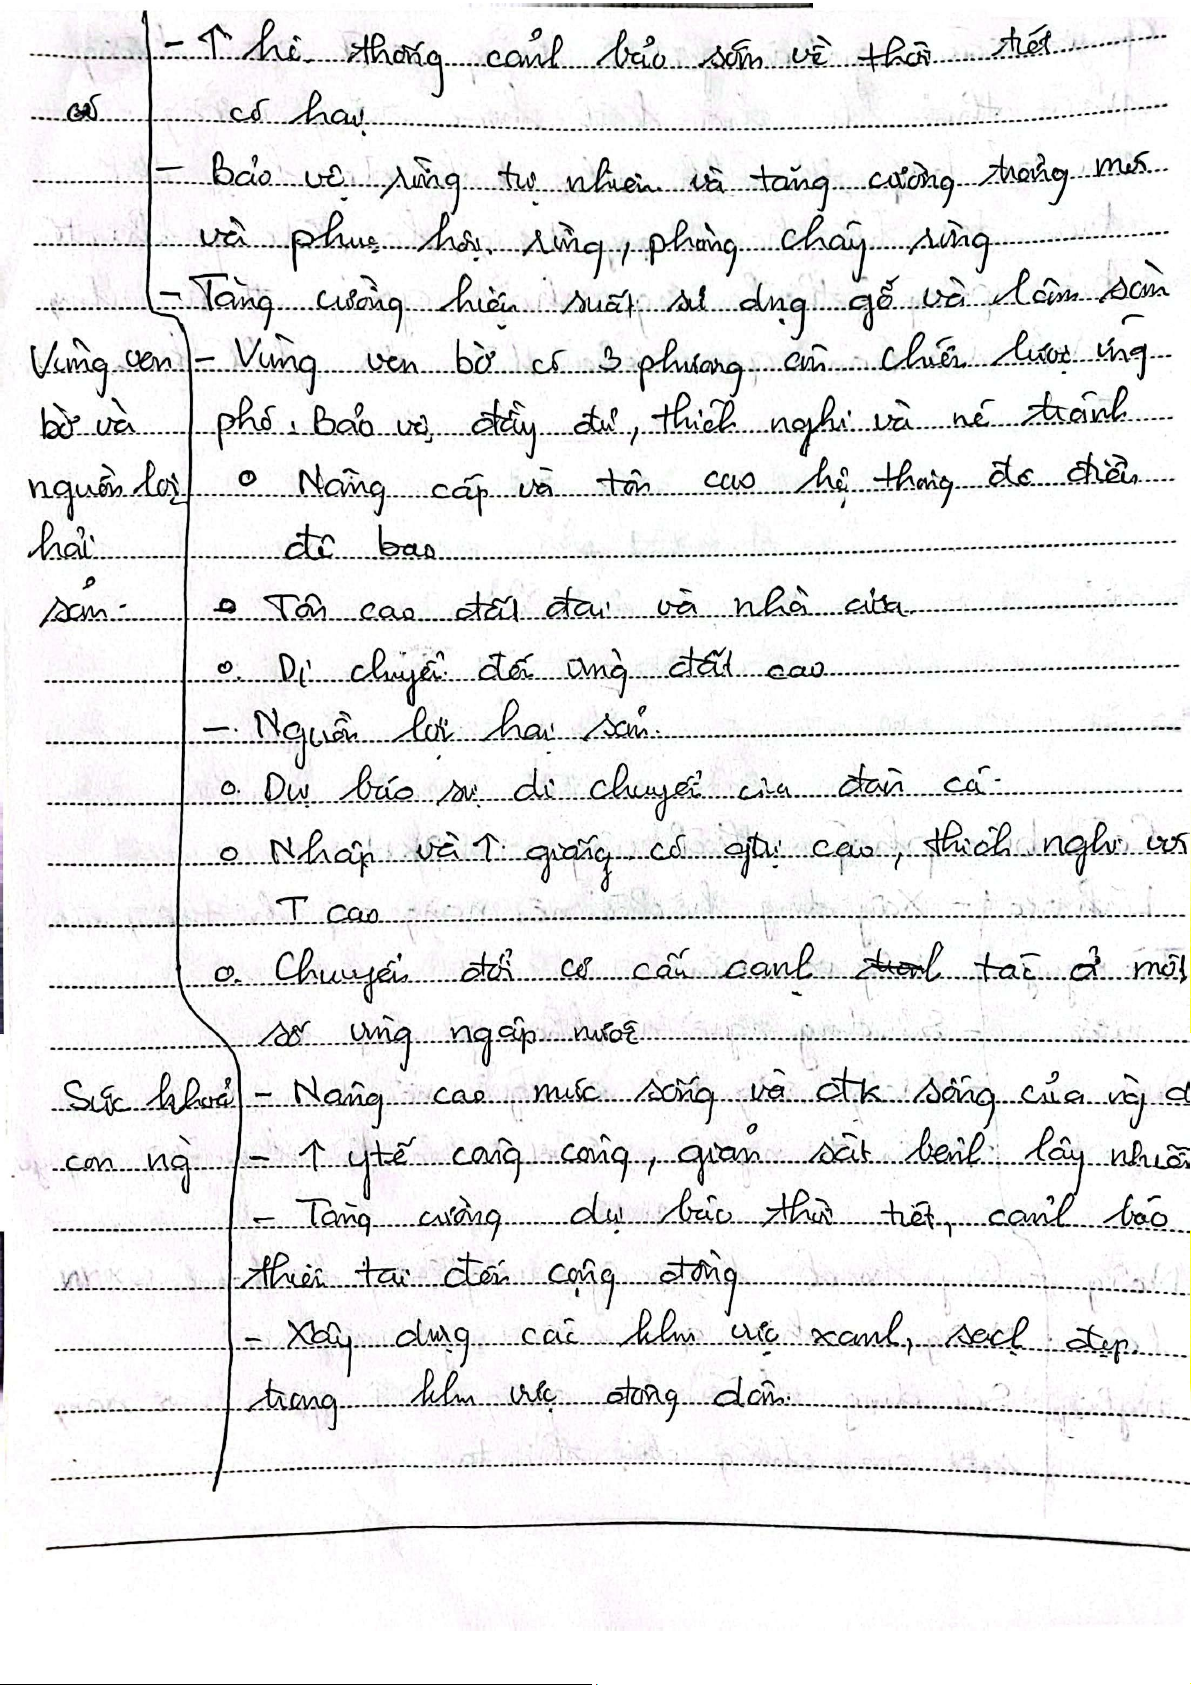 - ↑ hệ thống cảnh báo sớm về thời tiết
có hại
- Bảo vệ rừng tự nhiên và tăng cường trồng mới
và phục hồi rừng, phòng cháy rừng
- Tăng cường hiệu suất sử dụng gỗ và lâm sản
Vùng ven - Vùng ven bờ có 3 phương án chiến lược ứng
bờ và phó: Bảo vệ đầy đủ, thích nghi và né tránh
nguồn lợi o Nâng cấp và tôn cao hệ thống đê điều
hải đê bao
sản. o Tôn cao đất đai và nhà cửa
o Di chuyển đến vùng đất cao
- Nguồn lợi hải sản.
o Dự báo sự di chuyển của đàn cá.
o Nhập và ↑ giống có gtrị cao, thích nghi với
T cao
o Chuyển đổi cơ cấu canh tác ở một
số vùng ngập nước
Sức khoẻ - Nâng cao mức sống và đk sống của ng d
con ng - ↑ y tế công cộng, giám sát bệnh lây nhiễm
- Tăng cường dự báo thời tiết, cảnh báo
thiên tai đến cộng đồng
- Xây dựng các khu vực xanh, sạch đẹp
trong khu vực đông dân.